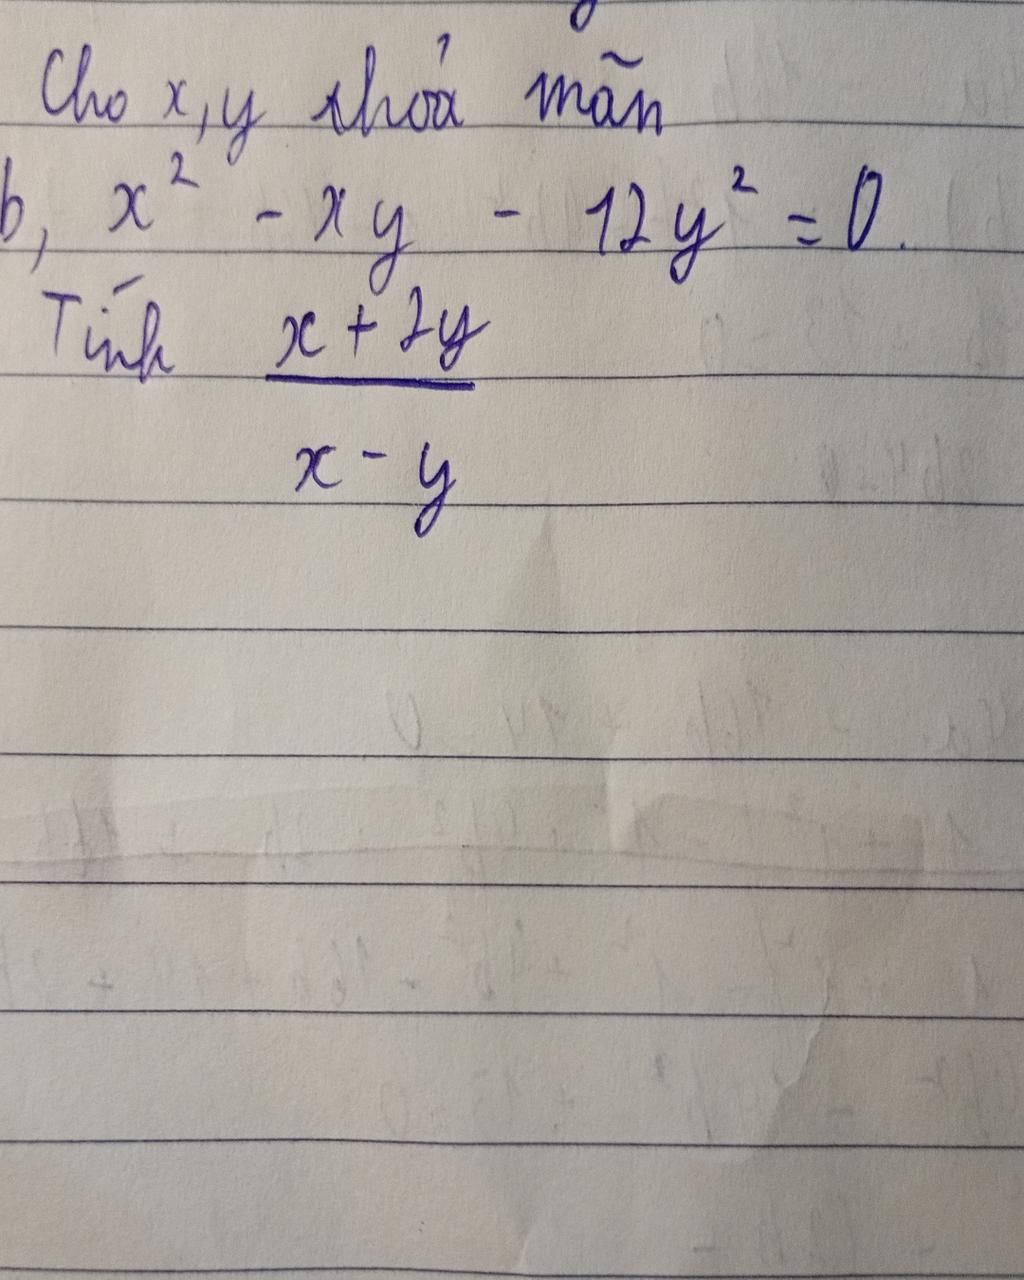 Cho x, y thoả mãn
b, x² - xy - 12y² = 0.
Tính x + 2y
x - y